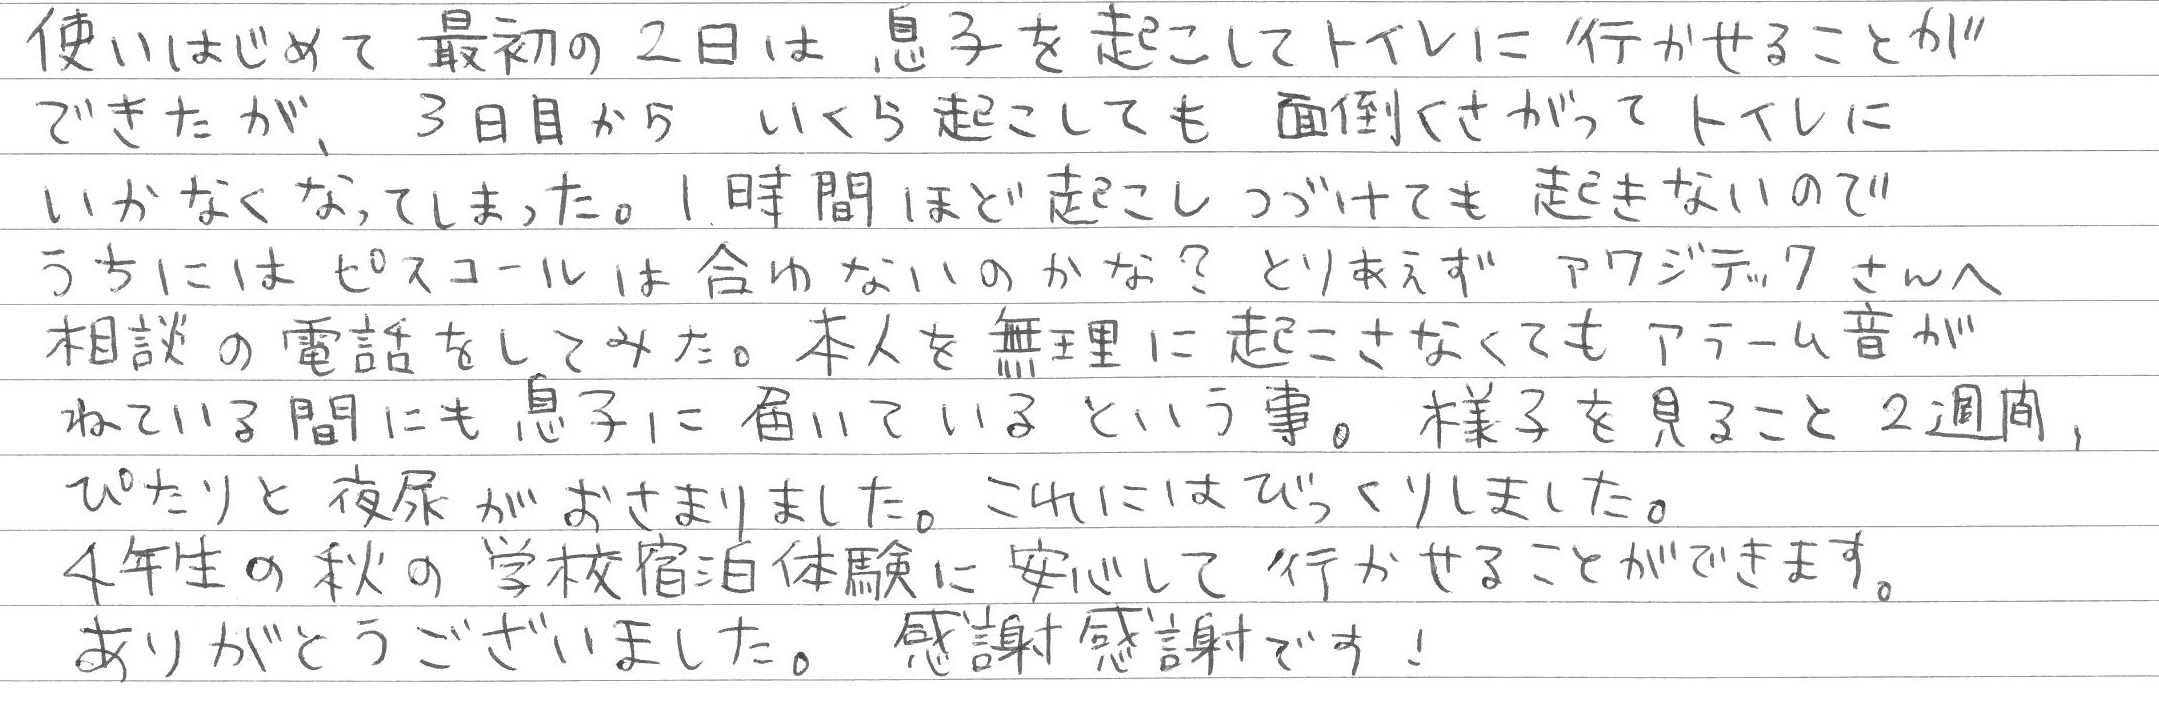 使いはじめて 最初の 2日は 息子を起こしてトイレに 行かせることが
できたが、 3日目から いくら起こしても 面倒くさがってトイレに
いかなくなってしまった。1時間ほど起こしつづけても 起きないので
うちには ピスコールは合わないのかな? とりあえず アワジテックさんへ
相談の電話をしてみた。本人を無理に起こさなくてもアラーム音が
ねている間にも息子に届いているという事。様子を見ること 2週間,
ぴたりと夜尿がおさまりました。これにはびっくりしました。
4年生の秋の学校宿泊体験に安心して行かせることができます。
ありがとうございました。 感謝感謝です!